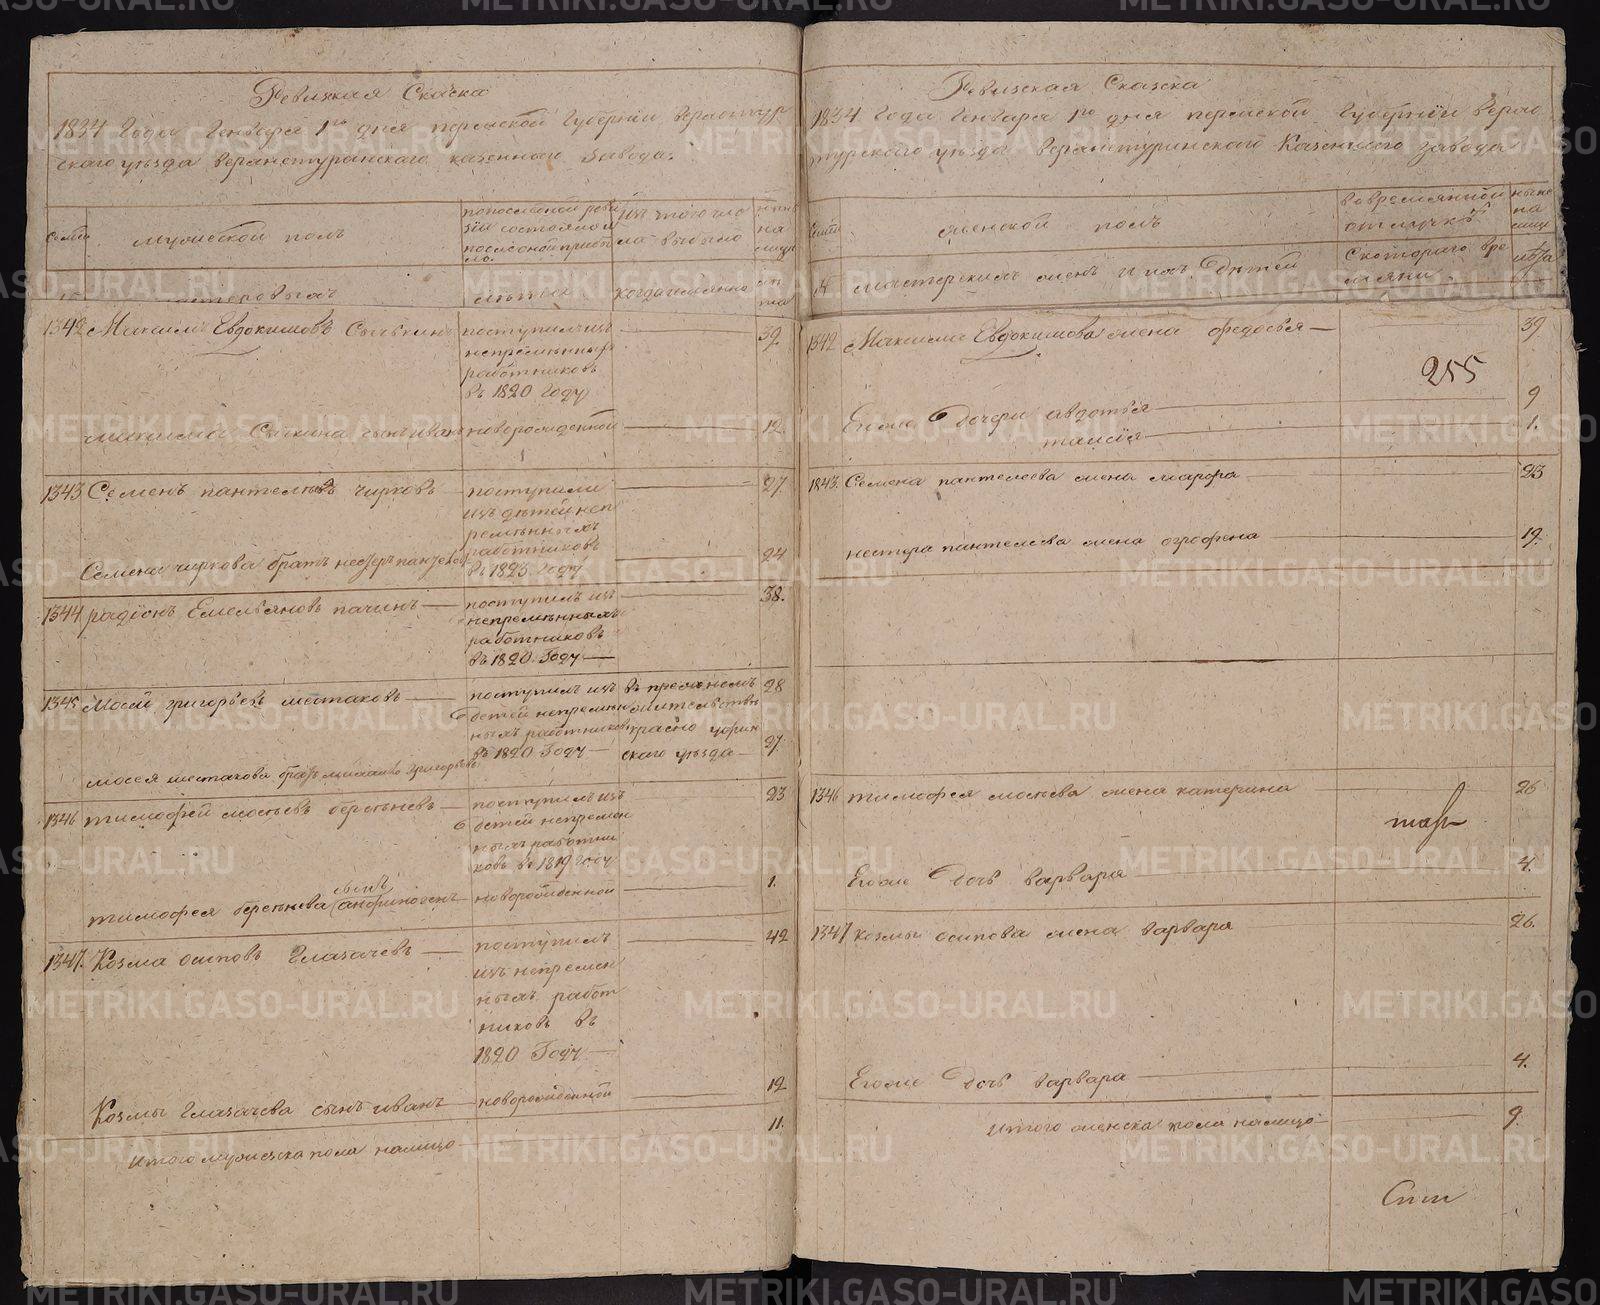 Ревизкая Скаска
1834 Года Генваря 1го дня пермской Губернии верхотур
скаго уезда верхнетуринскаго казеннаго завода.
Семьи
мужеской полъ
попоследней реви
зіи состояло и
после оной прибы
ло.
изъ того чис
ла выбыло
ныне
на
лицо
мастеровыхъ
летъ
когда имянно
ле
та
1342 Максимъ Евдокимовъ Сычькинъ поступилъ изъ 39.
непременныхъ
работниковъ
въ 1820 Году
Максима Сычкина сынъ иванъ новорожденной 12.
1343 Семенъ пантелеевъ чирковъ поступили 27.
изъ детей неп
ременныхъ
работниковъ
въ 1823 Году
Семена чиркова братъ нестеръ пантелеевъ 24
1344 радіонъ Емельяновъ пачинъ поступилъ изъ 38.
непременныхъ
работниковъ
въ 1820 Году
1345 Мосей григорьевъ шестаковъ поступилъ изъ 28
детей непремен
ныхъ работниковъ
въ 1820 Году
въ временномъ
жительстве
красно уфим
скаго уезда
мосея шестакова братъ михайло григорьевъ 27.
1346 тимофей мосеевъ берсеневъ поступилъ изъ 23
детей непремен
ныхъ работни
ковъ въ 1819 году
сынъ
тимофея берсенева анфиногенъ новорожденной 1.
1347. Козма осиповъ Глазачевъ поступилъ 42
изъ непремен
ныхъ работ
никовъ въ
1820 Году
Козмы Глазачева сынъ иванъ новорожденной 12
итого мужеска пола налицо 11.
Ревизская Сказка
1834 Года Генваря 1го дня пермской Губерніи верхо
турского уезда верхнетуринского Казенного завода
Семьи
женской полъ
во временной
отлучке
ныне
на
лицо
№ мастерскихъ женъ и ихъ детей
Скотораго вре
мяни
лета
1342 Максима Евдокимова жена федосья 39
255
Егоже дочери авдотья 9
таисія 1.
1843. Семена пантелеева жена марфа 23
нестера пантелеева жена огрофена 19.
1346 тимофея мосеева жена катерина 25
Егоже дочь варвара 4.
1347 козмы осипова жена варвара 26.
Егоже дочь варвара 4.
итого женска пола налицо 9.
METRIKI.GASO-URAL.RU